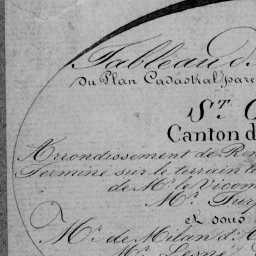 Tableau d
du Plan Cadastral parc
ST.
Canton d
Arrondissement de Ren
Terminé sur le terrain le
de Mr. le Vicom
Mr.
et sous
Mr. de Milan d'A
Mr.